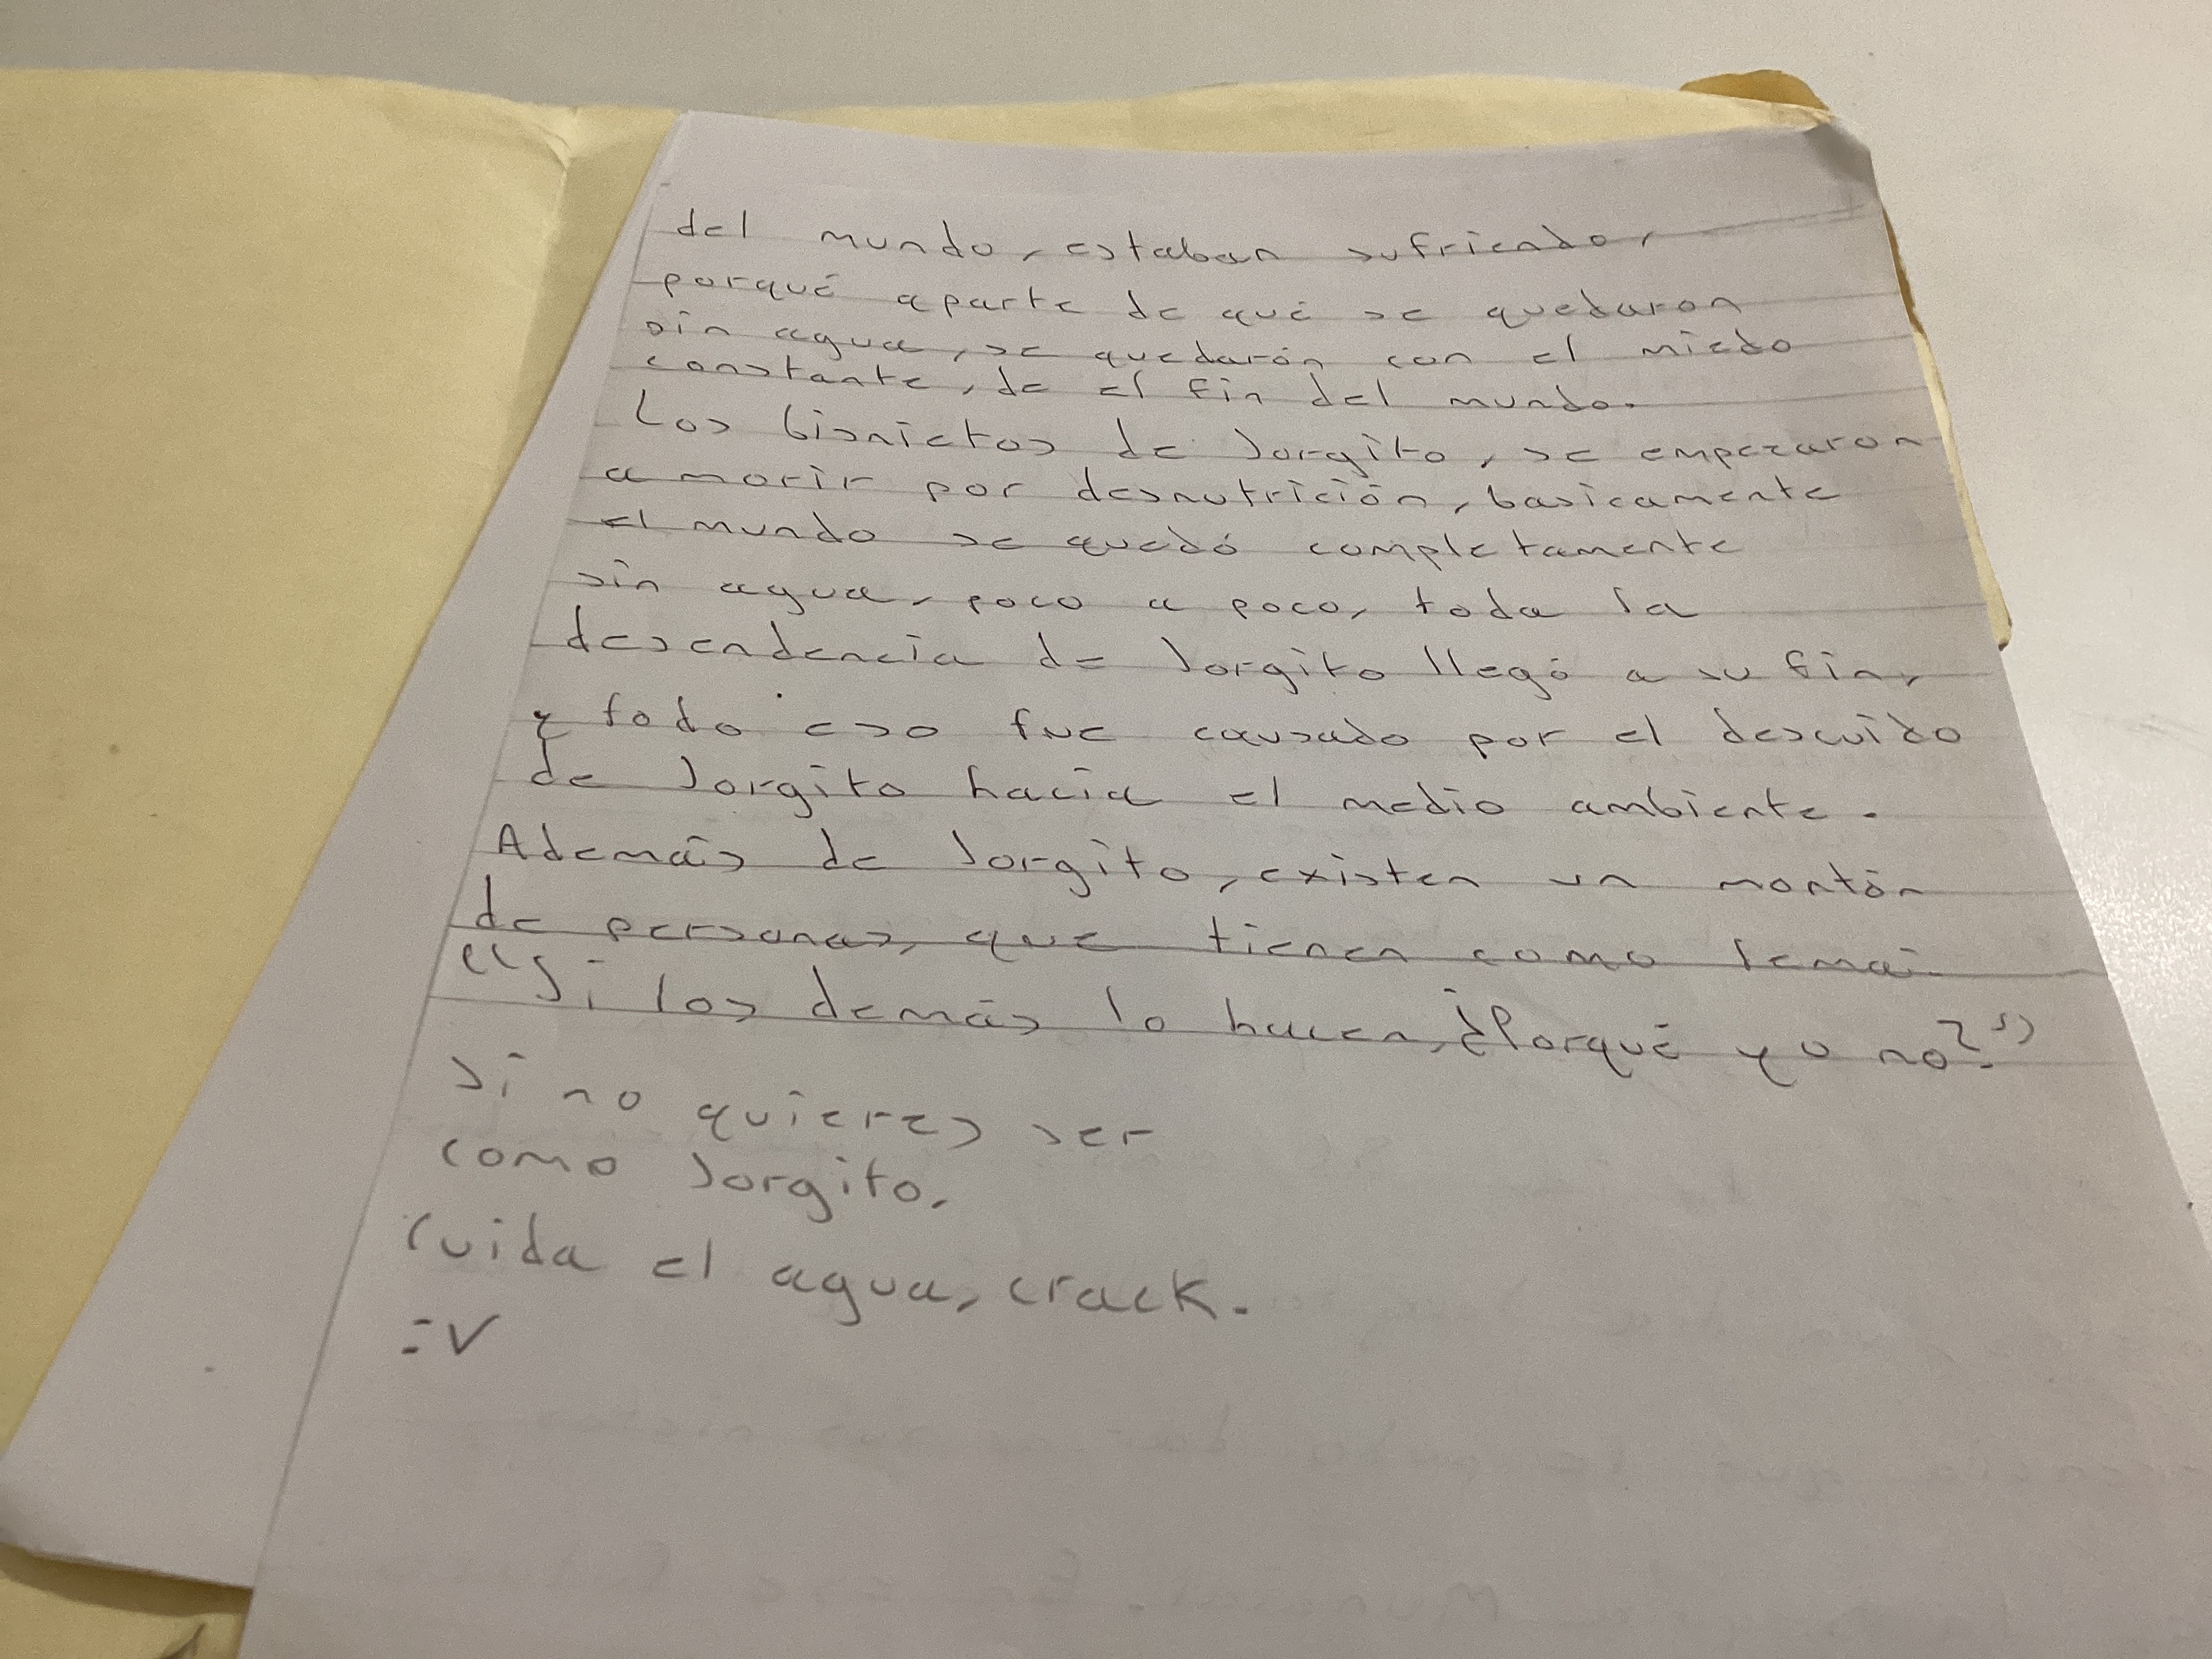 del mundo, estaban sufriendo,
porqué aparte de qué se quedaron
sin agua, se quedarón con el miedo
constante, de el fin del mundo.
Los bisnietos de Jorgito, se empezaron
a morir por desnutrición, basicamente
el mundo se quedó completamente
sin agua, poco a poco, toda la
desendencia de Jorgito llegó a su fin,
y todo eso fue causado por el descuido
de Jorgito hacia el medio ambiente.
Además de Jorgito, existen un montón
de personas, que tienen como lema:
"Si los demás lo hacen, ¿Porqué yo no?"
Si no quieres ser
como Jorgito,
Cuida el agua, crack.
:V